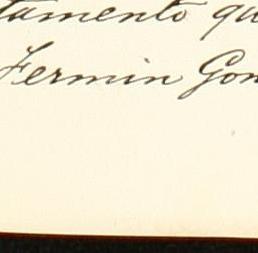 tamento qu
Fermin Gon